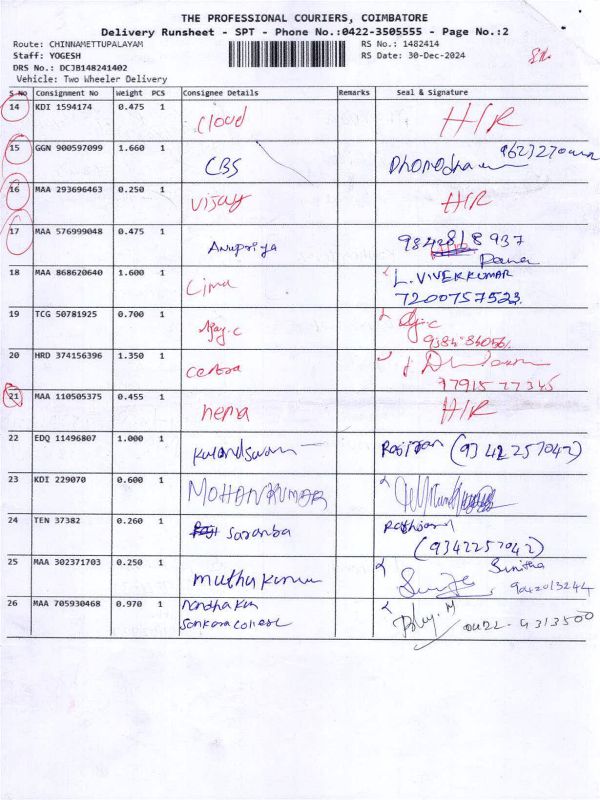 THE PROFESSIONAL COURIERS, COIMBATORE
Delivery Runsheet - SPT - Phone No.:0422-3505555 - Page No.:2
Route: CHINNAMETTUPALAYAM
RS No.: 1482414
Staff: YOGESH
RS Date: 30-Dec-2024
DRS No.: DCJB148241402
Vehicle: Two Wheeler Delivery
S No Consignment No Weight PCS Consignee Details Remarks Seal & Signature
14 KDI 1594174 0.475 1 cloud H/R
15 GGN 900597099 1.660 1 CBS
16 MAA 293696463 0.250 1 vijay H/R
17 MAA 576999048 0.475 1 Anupriya 98428/8 937
18 MAA 868620640 1.600 1 Cima L. VIVEKKUMAR
7200757523
19 TCG 50781925 0.700 1 Ajay.c
20 HRD 374156396 1.350 1
77915 27345
21 MAA 110505375 0.455 1 hema H/R
22 EDQ 11496807 1.000 1 (9342257042)
23 KDI 229070 0.600 1 MOHANKUMAR
24 TEN 37382 0.260 1 Saranba
(9342257042)
25 MAA 302371703 0.250 1 muthukumar Sunitha
9042013244
26 MAA 705930468 0.970 1 nandha kum
0422-4313500